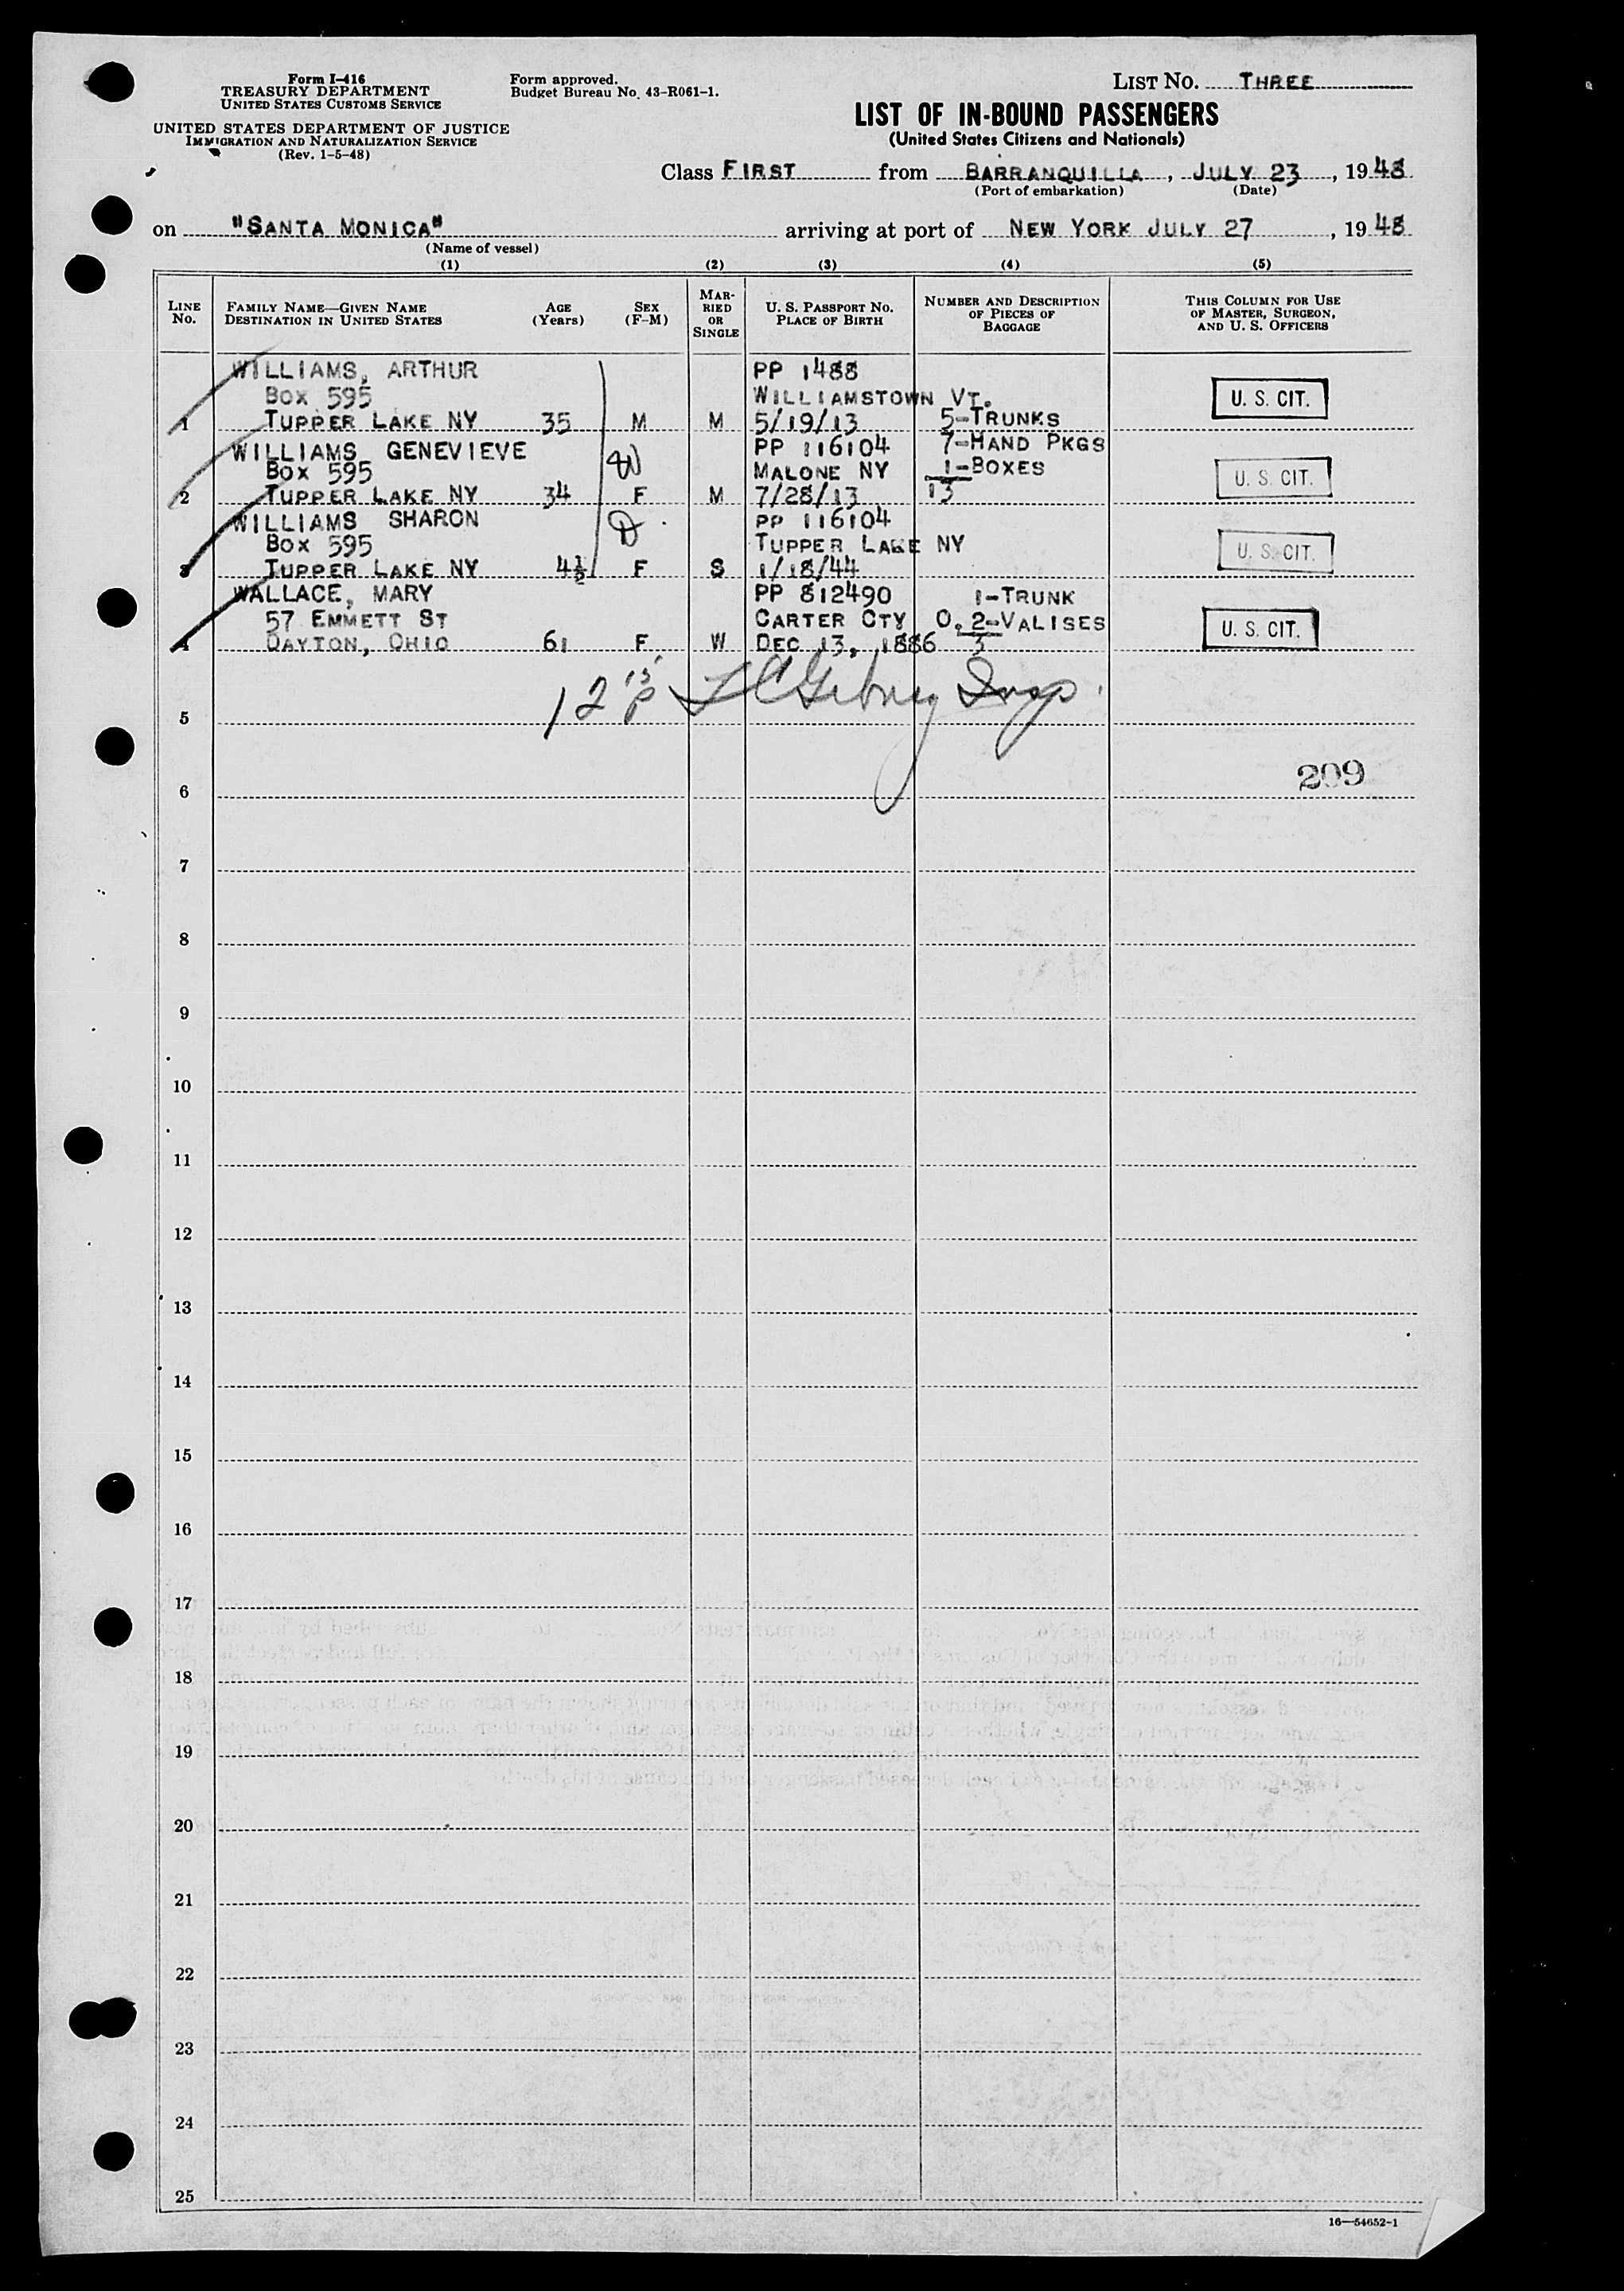 Form I-416
TREASURY DEPARTMENT
UNITED STATES CUSTOMS SERVICE
UNITED STATES DEPARTMENT OF JUSTICE
IMMIGRATION AND NATURALIZATION SERVICE
(Rev. 1-5-48)
Form approved.
Budget Bureau No. 43-R061-1.
LIST No. THREE
LIST OF IN-BOUND PASSENGERS
(United States Citizens and Nationals)
Class FIRST from BARRANQUILLA, JULY 23, 1948
(Port of embarkation) (Date)
on "SANTA MONICA" arriving at port of NEW YORK JULY 27, 1948
(Name of vessel)
(1) (2) (3) (4) (5)
LINE No.
FAMILY NAME—GIVEN NAME
DESTINATION IN UNITED STATES
AGE (Years)
SEX (F-M)
MARRIED OR SINGLE
U. S. PASSPORT No.
PLACE OF BIRTH
NUMBER AND DESCRIPTION OF PIECES OF BAGGAGE
THIS COLUMN FOR USE OF MASTER, SURGEON, AND U. S. OFFICERS
WILLIAMS, ARTHUR PP 1488
BOX 595 WILLIAMSTOWN VT. U. S. CIT.
1 TUPPER LAKE NY 35 M M 5/19/13 5-TRUNKS
WILLIAMS GENEVIEVE PP 116104 7-HAND PKGS
BOX 595 MALONE NY 1-BOXES U. S. CIT.
2 TUPPER LAKE NY 34 F M 7/28/13 13
WILLIAMS SHARON PP 116104
BOX 595 TUPPER LAKE NY U. S. CIT.
3 TUPPER LAKE NY 4½ F S 1/18/44
WALLACE, MARY PP 812490 1-TRUNK
57 EMMETT ST CARTER CTY O. 2-VALISES U. S. CIT.
4 DAYTON, OHIO 61 F W DEC 13, 1886 3
12 15 P Insp.
5
209
6
7
8
9
10
11
12
13
14
15
16
17
18
19
20
21
22
23
24
25
16—54652-1